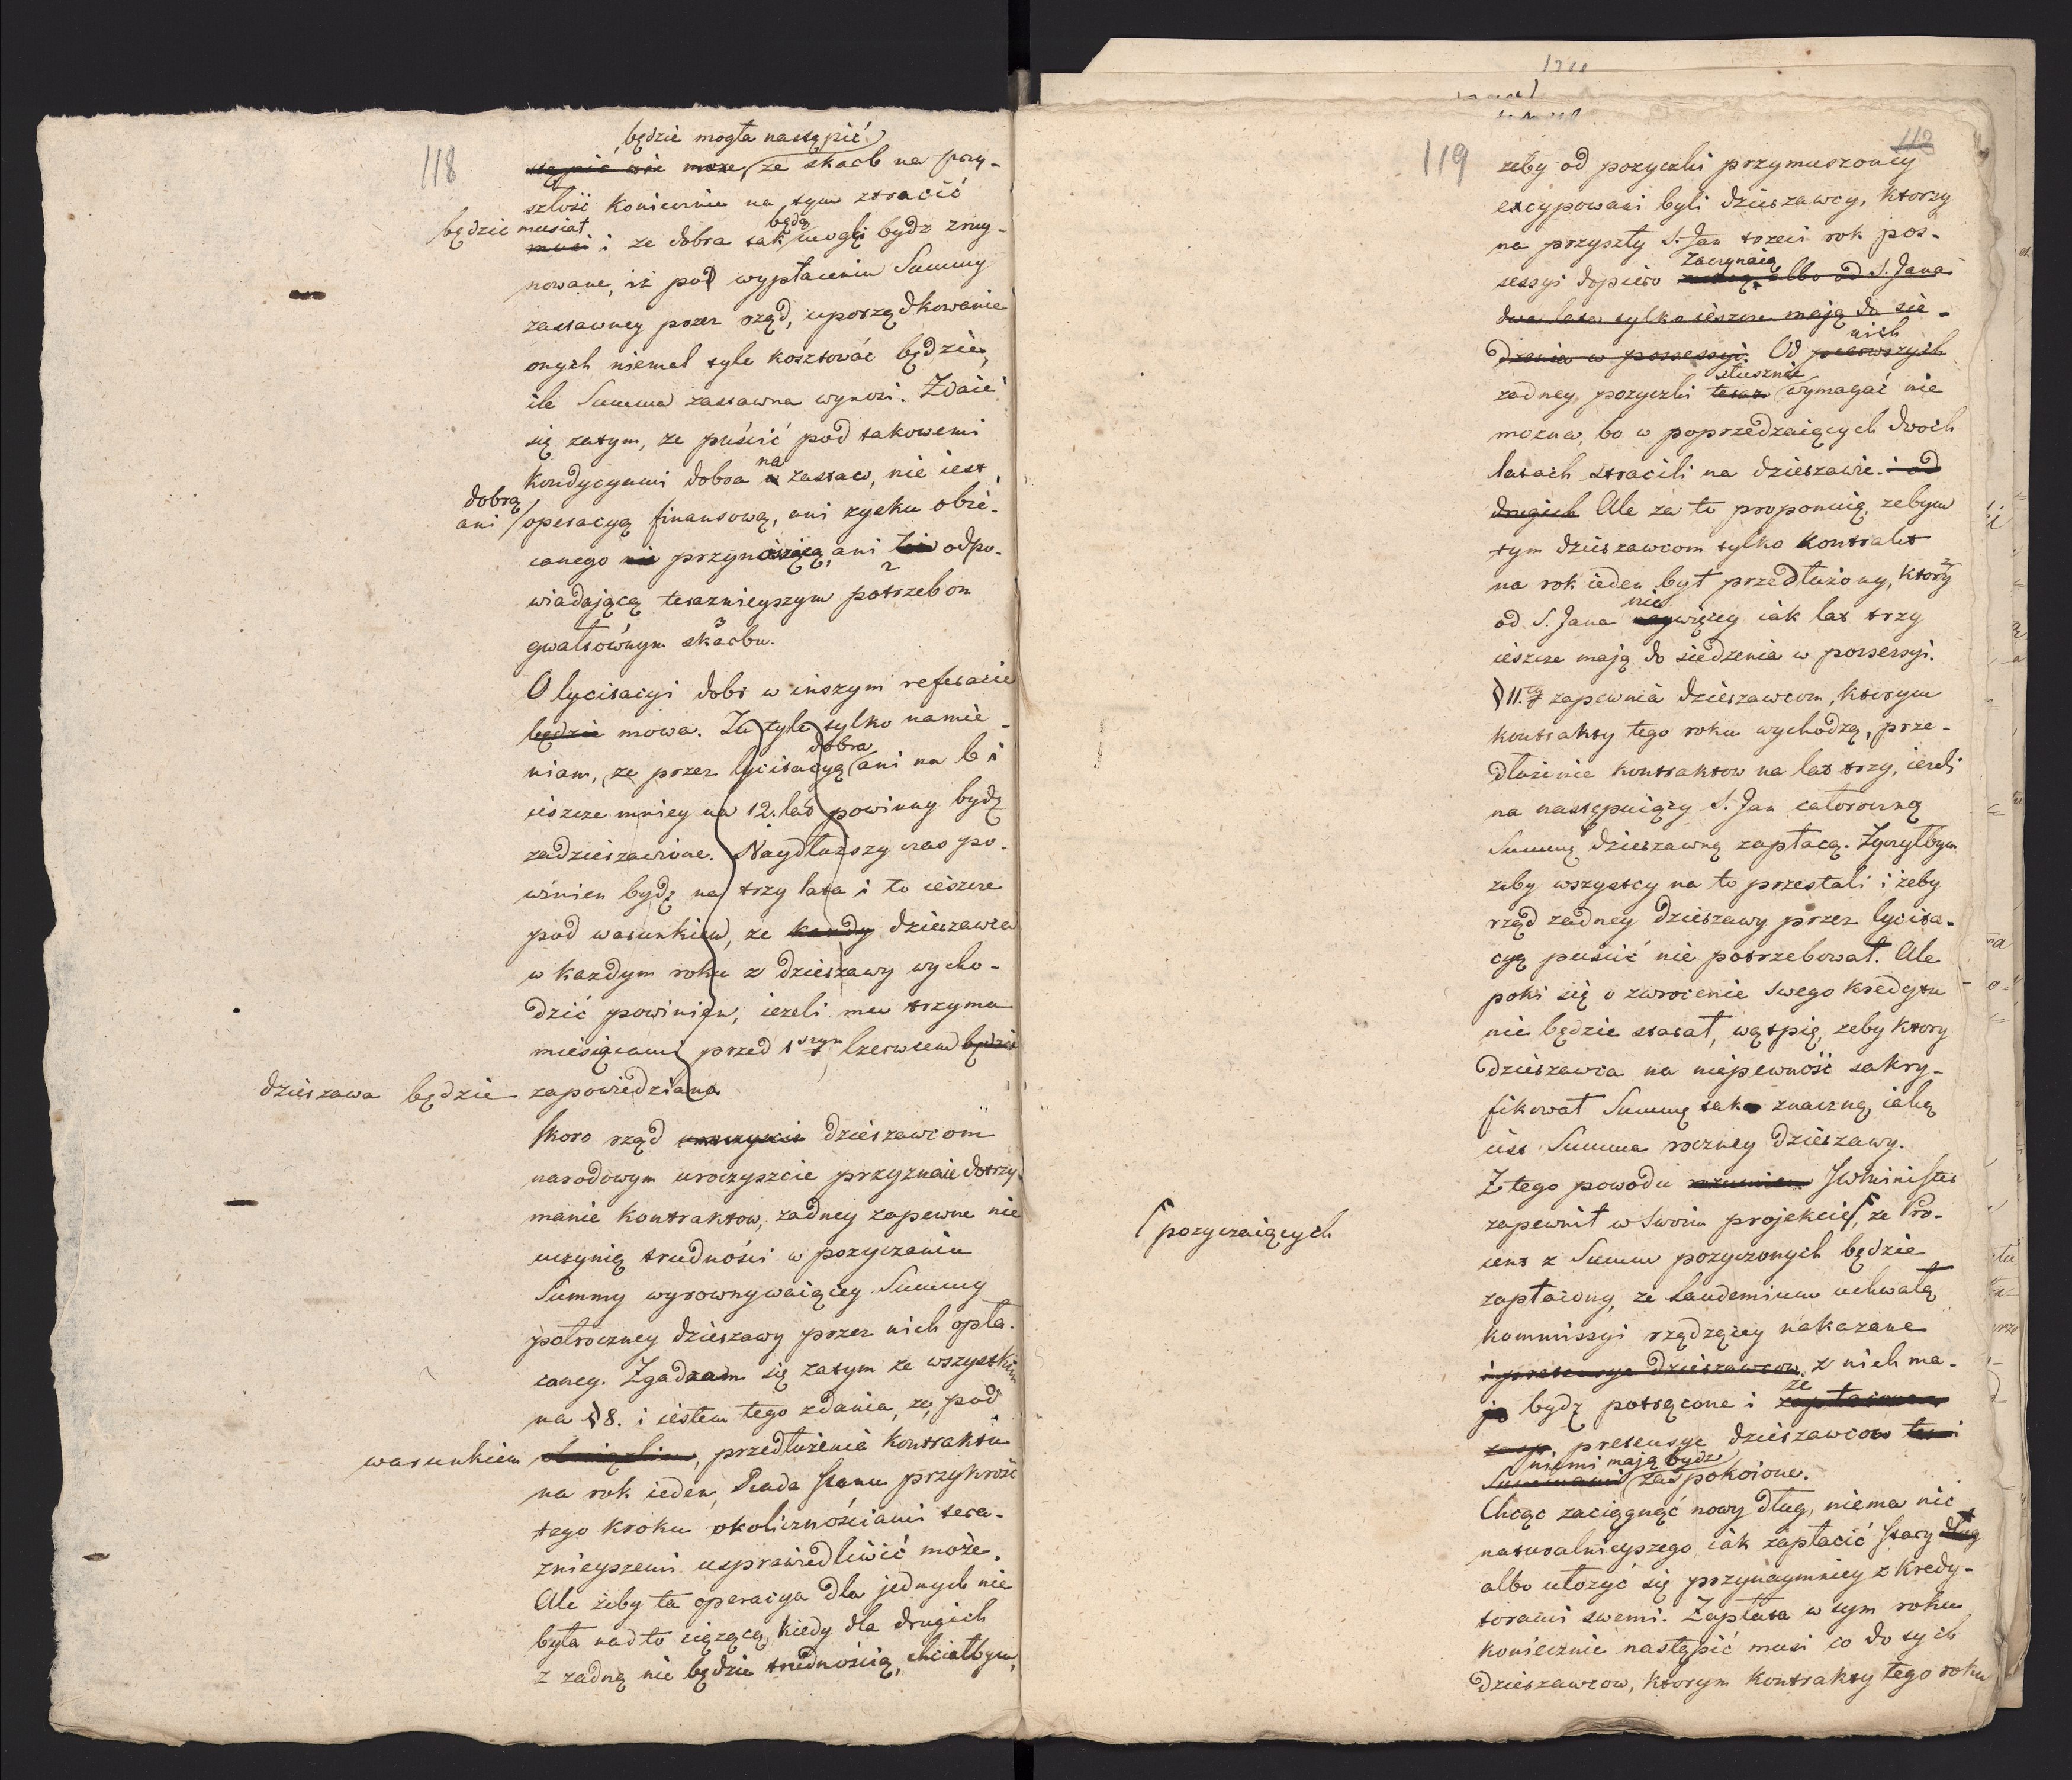 118
będzie mogła nastąpić
stąpić nie może, że skarb na przy-
szłość koniecznie na tym stracić
będzie musiał
musi i ze dobra tak będą mogli bydz zruy-
nowane, iż pod wypłaceniu Summy
zastawney przez rząd, uporządkowanie
onych niemal tyle kosztować będzie,
ile Summa zastawna wynosi. Zdaie
się zatym, ze puścić pod takowemi
kondycyami dobra na zastaw, nie iest
dobrą
ani operacyą finansową, ani zysku obie-
canego nie przynoszącą, ani odpo-
wiadającą teraznieyszym potrzebom
gwałtownym skarbu.
O lycitacyi dobr w inszym referacie
będzie mowa. Tu tyle tylko namie-
niam, ze przez lycitacyą dobra ani na 6 i
ieszcze mniey na 12. lat powinny bydź
zadzierzawione. Naydłuższy czas po-
winien bydź na trzy lata i to ieszcze
pod warunkiem, ze każdy dzierzawca
w kazdym roku z dzierżawy wycho-
dzić powinien, iezeli mu trzyma
miesiącami przed 1szym Czerwcem będzie
dzierzawa będzie zapowiedziana
Skoro rząd uroczyście dzierzawcom
narodowym uroczyszcie przyznaie dotrzy-
manie kontraktow, zadney zapewne nie
uczynią trudności w pozyczaniu
Summy wyrownywaiącey Summy
połroczney dzierzawy przez nich opła-
caney. Zgadzam się zatym ze wszystkim
na § 8. i iestem tego zdania, ze, pod
warunkiem, przedłużenia kontraktu
na rok ieden, Rada Stanu przykrość
tego kroku okolicznościami tera-
znieyszemi usprawiedliwić może.
Ale żeby ta operacya dla jednych nie
była nadto ciążącą, kiedy dla drugich
z zadną nie będzie trudnością, chciałbym,
119
112
zeby od pozyczki przymuszoney
excypowani byli dzierzawcy, ktorzy
na przyszły S. Jan trzeci rok pos-
sessyi dopiero zaczynaią albo od S. Jana
dwa lata tylko ieszcze mają do sie-
dzenia w possessyi. Od pierwszych nich
zadney pozyczki teraz słusznie wymagać nie
mozna, bo w poprzedzaiących dwoch
latach stracili na dzierzawie. i od
drugich Ale za to proponuię, zebym
tym dzierzawcom tylko kontrakt
na rok ieden był przedłużony, ktorzy
od S. Jana nie więcey iak lat trzy
ieszcze mają do siedzenia w possessyi.
§ 11. zapewnia dzierzawcom, ktorym
kontrakty tego roku wychodzą, prze-
dłużenie kontraktow na lat trzy, iezeli
na następuiący S. Jan całoroczną
Summę dzierzawną zapłacą. Zyczyłbym
zeby wszyscy na to przestali i żeby
rząd zadney dzierzawy przez lycita-
cyą puścić nie potrzebował. Ale
poki się o zwrocenie swego kredytu
nie będzie starał, wątpię, zeby ktory
dzierzawca na niepewność sakry-
fikował Summę tak znaczną, iaką
iest Summa roczney dzierzawy.
Z tego powodu JWMinister
zapewnił w Swoim projekcie, ze Pro-
pozyczaiących
cent z Summ pozyczonych będzie
zapłacony, ze Laudemium uchwałą
kommissyi rządzącey nakazane
i pretensye dzierzawcow z nich ma-
ją bydź potrącone i ze zapłacone
pretensye dzierzawcow temi
niemi mają bydz
Summami zaspokoione.
Chcąc zaciągnąć nowy dług, niema nic
naturalnieyszego iak zapłacić stary dług
albo ułozyc się przynaymniey z kredy-
torami swemi. Zapłata w tym roku
koniecznie nastąpić musi co do tych
dzierzawcow, ktorym kontrakty tego roku